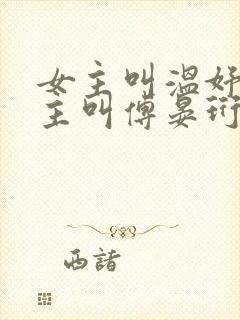 女主叫温妤
主叫傅晏珩
西諸